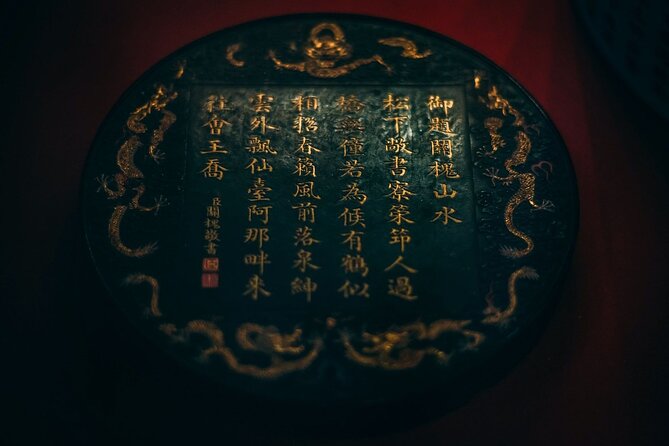 御題關槐山水
松下敞書寮策筇人過
橋與僮若為候有鶴似
相招春籟風前落泉紳
雲外飄仙臺阿那畔來
社會王喬
臣關槐敬書